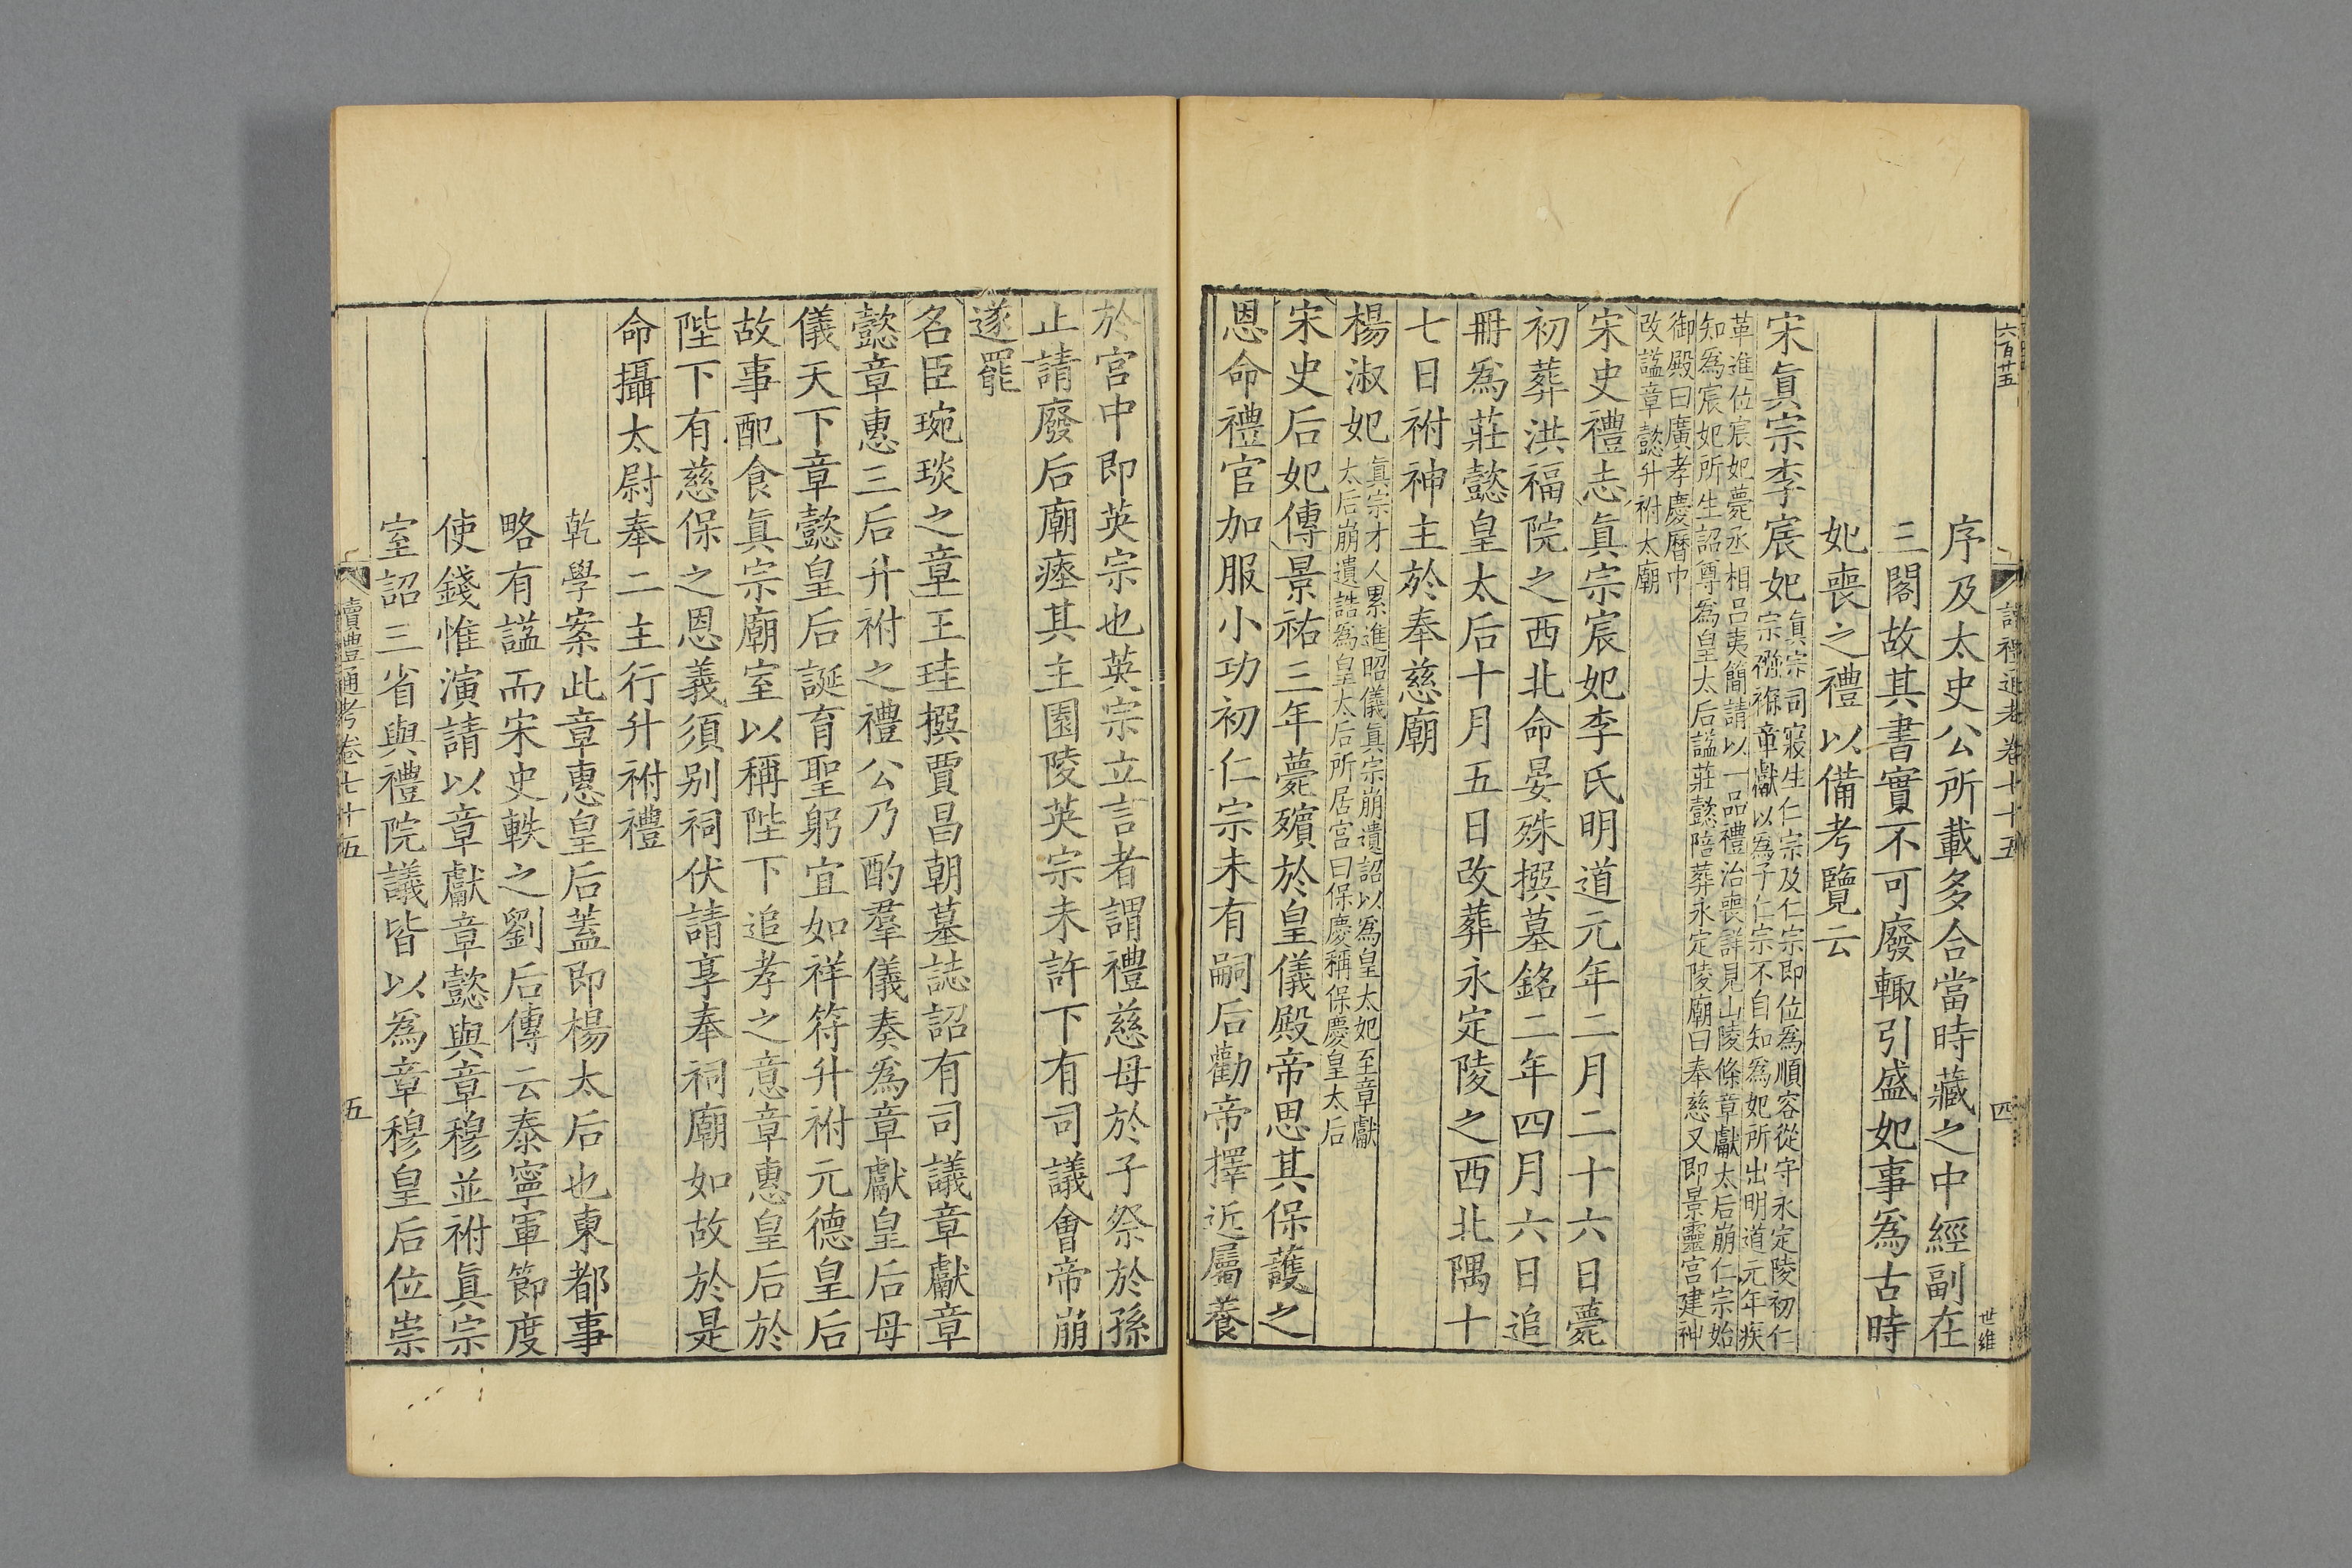 六百廿五
讀禮通考卷七十五
四
世維
序及太史公所載多合當時藏之中經副在
三閣故其書實不可廢輙引盛妃事爲古時
妃喪之禮以備考覽云
宋眞宗李宸妃
眞宗司寢生仁宗及仁宗即位爲順容從守永定陵初仁
宗襁褓章獻以爲子仁宗不自知爲妃所出明道元年疾
革進位宸妃薨丞相呂夷簡請以一品禮治喪詳見山陵條章獻太后崩仁宗始
知爲宸妃所生詔尊爲皇太后諡莊懿陪葬永定陵廟曰奉慈又即景靈宮建神
御殿曰廣孝慶曆中
改諡章懿升祔太廟
宋史禮志眞宗宸妃李氏明道元年二月二十六日薨
初葬洪福院之西北命晏殊撰墓銘二年四月六日追
冊爲莊懿皇太后十月五日改葬永定陵之西北隅十
七日祔神主於奉慈廟
楊淑妃
眞宗才人累進昭儀眞宗崩遺詔以爲皇太妃至章獻
太后崩遺誥爲皇太后所居宮曰保慶稱保慶皇太后
宋史后妃傳景祐三年薨殯於皇儀殿帝思其保護之
恩命禮官加服小功初仁宗未有嗣后勸帝擇近屬養
於宮中即英宗也英宗立言者謂禮慈母於子祭於孫
止請廢后廟瘞其主園陵英宗未許下有司議會帝崩
遂罷
名臣琬琰之章王珪撰賈昌朝墓誌詔有司議章獻章
懿章惠三后升祔之禮公乃酌羣儀奏爲章獻皇后母
儀天下章懿皇后誕育聖躬宜如祥符升祔元德皇后
故事配食眞宗廟室以稱陛下追孝之意章惠皇后於
陛下有慈保之恩義須别祠伏請享奉祠廟如故於是
命攝太尉奉二主行升祔禮
乾學案此章惠皇后蓋即楊太后也東都事
略有諡而宋史軼之劉后傳云泰寧軍節度
使錢惟演請以章獻章懿與章穆並祔眞宗
室詔三省與禮院議皆以爲章穆皇后位崇
讀禮通考卷七十五
五